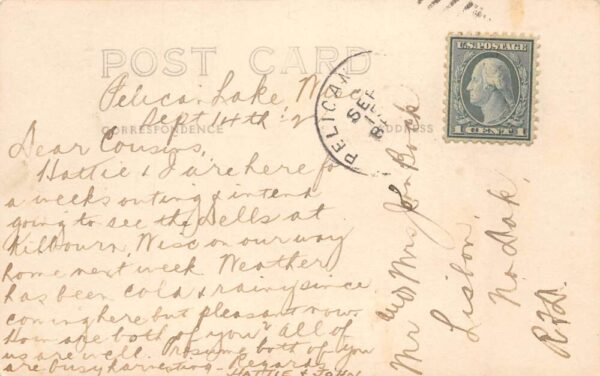 POST CARD
Pelican Lake, Wisc
Sept 14th '2
CORRESPONDENCE
ADDRESS
Dear Cousins,
Hattie & I are here for
a weeks outing & intend
going to see the Dells at
Kilbourn, Wisc on our way
home next week. Weather
has been cold & rainy since
coming here but pleasant now.
How are both of you all of
us are well. Presume both of you
are busy harvesting - Regards
HATTIE & JOHN
PELICAN
SEP
U.S. POSTAGE
1 CENT 1
Mr & Mrs John Bock
Lisbon,
No Dak,
R.F.D.